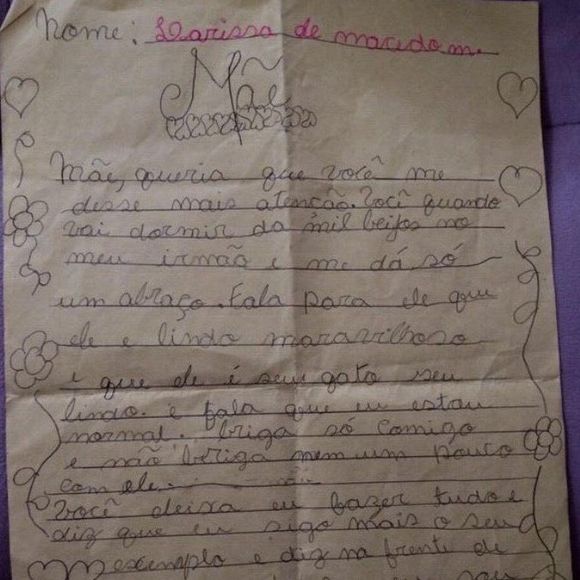 Nome: Larissa de macedo m.
Mãe
Mãe, queria que você me
desse mais atenção. Você quando
vai dormir da mil beijos no
meu irmão e me dá só
um abraço. Fala para ele que
ele e lindo maravilhoso
e que ele é seu gato seu
lindo. e fala que eu estou
normal. briga só comigo
e não briga nem um pouco
com ele.
Você deixa eu fazer tudo e
diz que eu sigo mais o seu
exemplo e diz na frente de